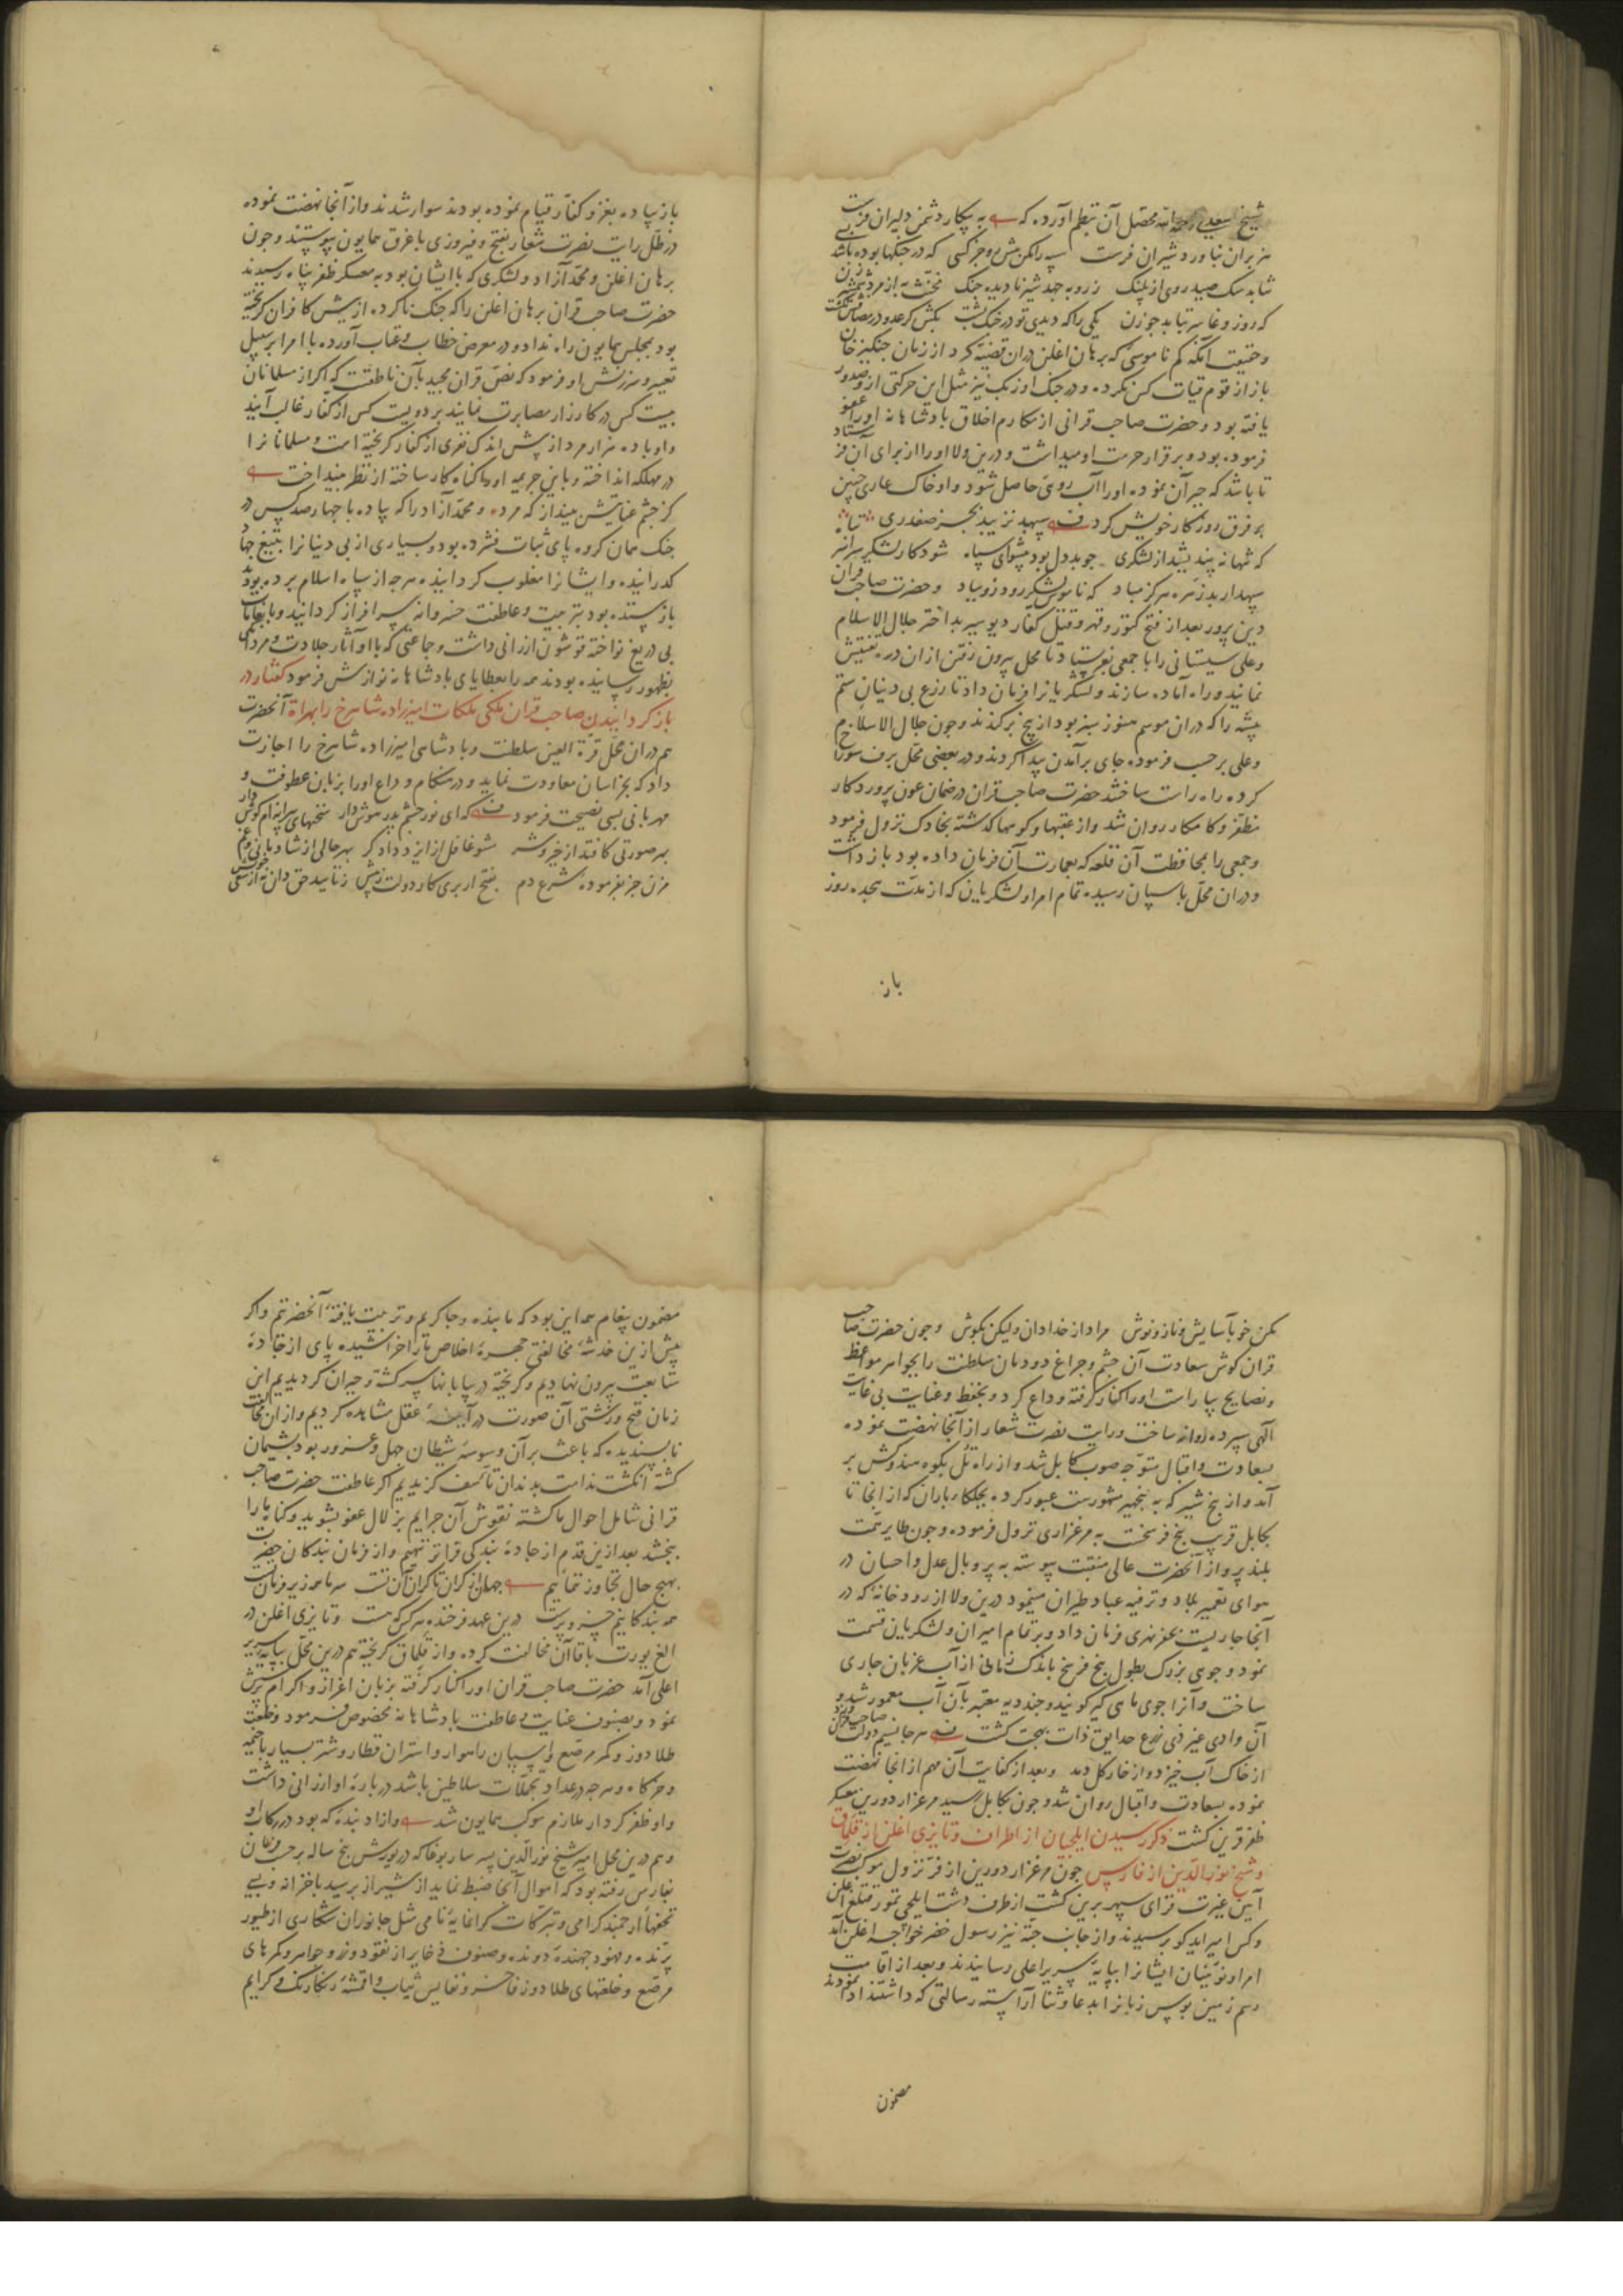 شیخ سعدی رحمه الله محصّل آن بنظم آورده که به پیکار دشمن دلیران فرست
هزبران بناورد شیران فرست سپه را مکن پیش رو جز کسی که در جنگها بوده باشد بسی
نتابد سگ صید روی از پلنگ ز روبه جهد شیر نادیده جنگ مخنث به از مرد شمشیرزن
که روز وغا سر بتابد جو زن یکی را که دیدی تو در جنگ پشت بکش کر عدو در مصافش نکشت
و حقیقت آنکه کم ناموسی که برهان اغلن دران قضیّه کرد از زمان جنکیز خان
باز از قوم قیات کس نکرده و در جنک اوزبک نیز مثل این حرکتی ازو صدور
یافته بود و حضرت صاحب قرانی از مکارم اخلاق پادشاهانه او را عفو
فرموده بود و برقرار حرمت او میداشت و درین ولا او را از برای آن فرستاد
تا باشد که جبر آن نموده او را آب رویی حاصل شود و او خاک عاری جنین
بر فرق روزکار خویش کرد سپهبد نزیبد بجز صفدری
که تنها نه پیشد از لشکری جو بددل بود پیشوای سپاه شود کار لشکر سراسر تباه
سپهدار بدزهره هرکز مباد که ناموس لشکر رود زو بباد و حضرت صاحب قران
دین پرور بعد از فتح کتور و قهر و قتل کفار دیو سیر بداختر جلال الاسلام
و علی سیستانی را با جمعی بفرستاد تا محل بیرون رفتن ازان دره تفتیش
نمایند و راه آماده سازند و لشکریانرا فرمان داد تا زرع بی دینان ستم
پیشه را که دران موسم هنوز سبز بود از بیخ برکندند و جون جلال الاسلام
و علی بر حسب فرموده جای برآمدن پیدا کردند و در بعضی محل برف سوراخ
کرده راه راست ساختند حضرت صاحب قران در ضمان عون پروردکار
مظفّر و کامکار روان شد و از عقبها و کوهها کذشته بخاوک نزول فرمود
و جمعی را بمحافظت آن قلعه که بعمارت آن فرمان داده بود باز داشت
و دران محلّ باسپان رسیده تمام امرا و لشکریان که از مدّت هجده روز
باز
باز پیاده بغزو کفّار قیام نموده بودند سوار شدند و از آنجا نهضت نموده
در ظلّ رایت نصرت شعار بفتح و فیروزی باغرق همایون پیوستند و جون
برهان اغلن و محمّد آزاد و لشکری که با ایشان بود به معسکر ظفر پناه رسیدند
حضرت صاحب قران برهان اغلن را که جنک ناکرده از پیش کافران کریخته
بود بمجلس همایون راه نداد و در معرض خطاب و عتاب آورده با امرا بر سبیل
تعییر و سرزنش او فرمود که نصّ قران مجید بآن ناطقست که اکر از مسلمانان
بیست کس در کارزار مصابرت نمایند بر دویست کس از کفار غالب آیند
و او با ده هزار مرد از پیش اندک نفری از کفار کریخته است و مسلمانانرا
در مهلکه انداخته و باین جریمه او را کناه کار ساخته از نظر بینداخت
کز جشم عنایتش بینداز که مرد و محمّد آزاد را که پیاده با جهارصد کس در
جنک همان کروه پای ثبات فشرده بود و بسیاری از بی دینانرا بتیغ جهاد
کذرانیده و ایشانرا مغلوب کردانیده هرجه از سپاه اسلام برده بودند
باز ستده بود بتربیت و عاطفت خسروانه سرافراز کردانید و بانعامات
بی دریغ نواخته قوشون ارزانی داشت و جماعتی که با او آثار جلادت و مردانکی
بظهور رسانیده بودند همه را بعطایای پادشاهانه نوازش فرمود کفتار در
باز کردانیدن صاحب قران ملکی ملکات امیرزاده شاهرخ را بهراة آنحضرت
هم دران محلّ قرّة العین سلطنت و پادشاهی امیرزاده شاهرخ را اجازت
داد که بخراسان معاودت نماید و در هنکام وداع او را بزبان عطوفت و
مهربانی بسی نصیحت فرمود که ای نور جشم پدر هوش دار سخنهای پیرانه ام کوش دار
بهر صورتی کافتد از خیر و شر مشو غافل از ایزد دادکر بهر حالی از شادمانی و غم
مزن جز بفرموده شرع دم بفتح ار بری کار دولت ز پیش ز تایید حق دان نه از سعی خویش
مکن خو بآسایش و ناز و نوش مراد از خدا دان ولیکن بکوش و جون حضرت صاحب
قران کوش سعادت آن جشم و جراغ دودمان سلطنت را بجواهر مواعظ
و نصایح بیاراست او را کنار کرفته وداع کرد و بحفظ و عنایت بی غایت
آلهی سپرده روانه ساخت و رایت نصرت شعار از آنجا نهضت نموده
بسعادت و اقبال متوّجه صوب کابل شد و از راه تل بکوه هندوکش بر
آمد و از پنج شیر که به پنجهیر مشهورست عبور کرده بجلکاء باران که از انجا تا
بکابل قریب پنج فرسخست به مرغزاری نزول فرموده و جون طایر همّت
بلند پرواز آنحضرت عالی منقبت پیوسته به پر و بال عدل و احسان در
هوای تعمیر بلاد و ترفیه عباد طیران مینمود درین ولا از رودخانهٔ که در
آنجا جاریست بحفر نهری فرمان داد و بر تمام امیران و لشکریان قسمت
نمود و جوی بزرک بطول پنج فرسخ باندک زمانی از آب غربان جاری
ساخت و آنرا جوی ماهی کیر کویند و جند دیه معتبر بآن آب معمور شد و
آن وادی غیر ذی زرع حدایق ذات بهجت کشت هرجا نسیم دولت صاحب قران وزد
از خاک آب خیزد و از خار کل دمد و بعد از کفایت آن مهم از انجا نهضت
نموده بسعادت و اقبال روان شد و جون بکابل رسید مرغزار دورین معسکر
ظفر قرین کشت ذکر رسیدن ایلجیان از اطراف و تایزی اغلن از قلماق
و شیخ نور الدّین از فارس جون مرغزار دورین از فرّ نزول موکب نصرت
آیین غیرت فزای سپهر برین کشت از طرف دشت ایلجی تمور قتلغ اغلن
و کس امیر ایدکو برسیدند و از جانب جته نیز رسول خضر خواجه اغلن آمد
امرا و نوئینان ایشانرا بپایهٔ سریر اعلی رسانیدند و بعد از اقامت
رسم زمین بوس زبانرا بدعا و ثنا آراسته رسالتی که داشتند ادا نمودند
مضمون
مضمون پیغام همه این بود که ما بنده و جاکریم و تربیت یافتهٔ آنحضرتیم و اکر
پیش ازین خدشهٔ مخالفتی جهرهٔ اخلاص ما را خراشیده پای از جادهٔ
متابعت بیرون نهادیم و کریخته در بیابانها سرکشته و حیران کردیدیم این
زمان قبح و زشتی آن صورت در آیینهٔ عقل مشاهده کردیم و ازان افعال
ناپسندیده که باعث بر آن وسوسهٔ شیطان جهل و غرور بود پشیمان
کشته انکشت ندامت بدندان تأسّف کزیدیم اکر عاطفت حضرت صاحب
قرانی شامل احوال ما کشته نقوش آن جرایم بزلال عفو بشوید و کناه ما را
ببخشد بعد ازین قدم از جادهٔ بندکی فراتر ننهیم و از فرمان بندکان حضرت
بهیچ حال تجاوز ننماییم جهان از کران تا کران آن تست سر ما همه زیر فرمان تست
همه بندکانیم خسرو پرست درین عهد فرخنده هر کس که هست و تایزی اغلن در
الغ یورت با قاآن مخالفت کرده و از قلماق کریخته هم درین محلّ بپایه سریر
اعلی آمد حضرت صاحب قران او را کنار کرفته بزبان اعزاز و اکرام پرسش
نمود و بصنوف عنایت و عاطفت پادشاهانه مخصوص فرمود و خلعت
طلادوز و کمر مرصّع و اسپان راهوار و استران قطار و شتر بسیار با خیمه
و خرکاه و هرجه در عداد تجمّلات سلاطین باشد در بارهٔ او ارزانی داشت
و او ظفر کردار ملازم موکب همایون شد و ازاد بندهٔ که بود در رکاب او
و هم درین محل امیر شیخ نور الدّین پسر سار بوغا که در یورش پنج ساله بر حسب فرمان
بفارس رفته بود که اموال آنجا ضبط نماید از شیراز برسید با خزانهٔ و بسی
تحفهای ارجمند کرامی و تبرّکات کرانمایهٔ نامی مثل جانوران شکاری از طیور
پرّنده و فهود جهندهٔ دونده و صنوف ذخایر از نقود و زر و جواهر و کمرهای
مرصّع و خلعتهای طلادوز فاخر و نفایس ثیاب و اقمشهٔ رنکارنک و کرایم